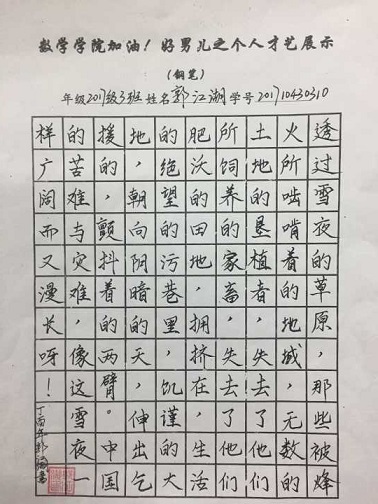 数学学院加油！好男儿之个人才艺展示
（钢笔）
年级2017级3班 姓名郭江湖 学号201710430310
透过雪夜的草原，那些被烽
火所啮啃着的地域，无数的
土地的垦植者，失去了他们
所饲养的家畜，失去了他们
肥沃的田地，拥挤在，生活
的绝望的污巷里，饥谨的大
地，朝向阴暗的天，伸出乞
援的，颤抖着的两臂。中国
的苦难与灾难，像这雪夜一
样广阔而又漫长呀！
丁酉年郭江湖书